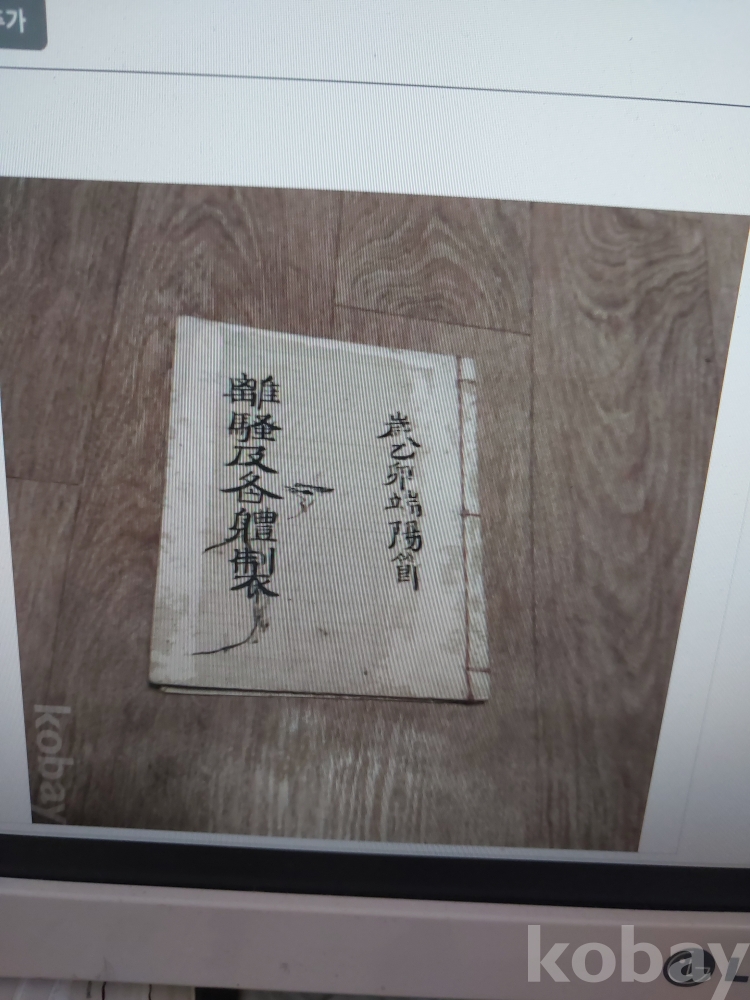 추가
歲乙卯端陽節
離騷及各體製
kobay
kobay